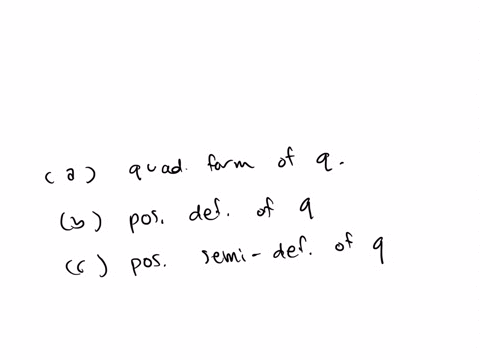 (a) quad. form of q.
(b) pos. def. of q
(c) pos. semi-def. of q